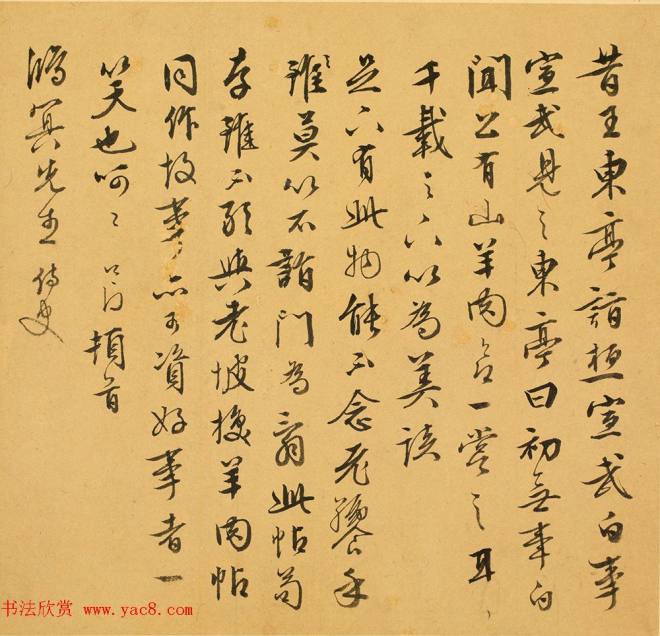 昔王東亭詣桓宣武白事
宣武見之東亭曰初無事白
聞公有山羊肉欲一嘗之耳
千載之下以為美談
足下有此物能不念老饕手
雖莫以不詣門為翁此帖苟
存雖不能與老坡換羊肉帖
同作故事亦可資好事者一
笑也呵呵 頓首
鴻冥先生侍史
书法欣赏 www.yac8.com